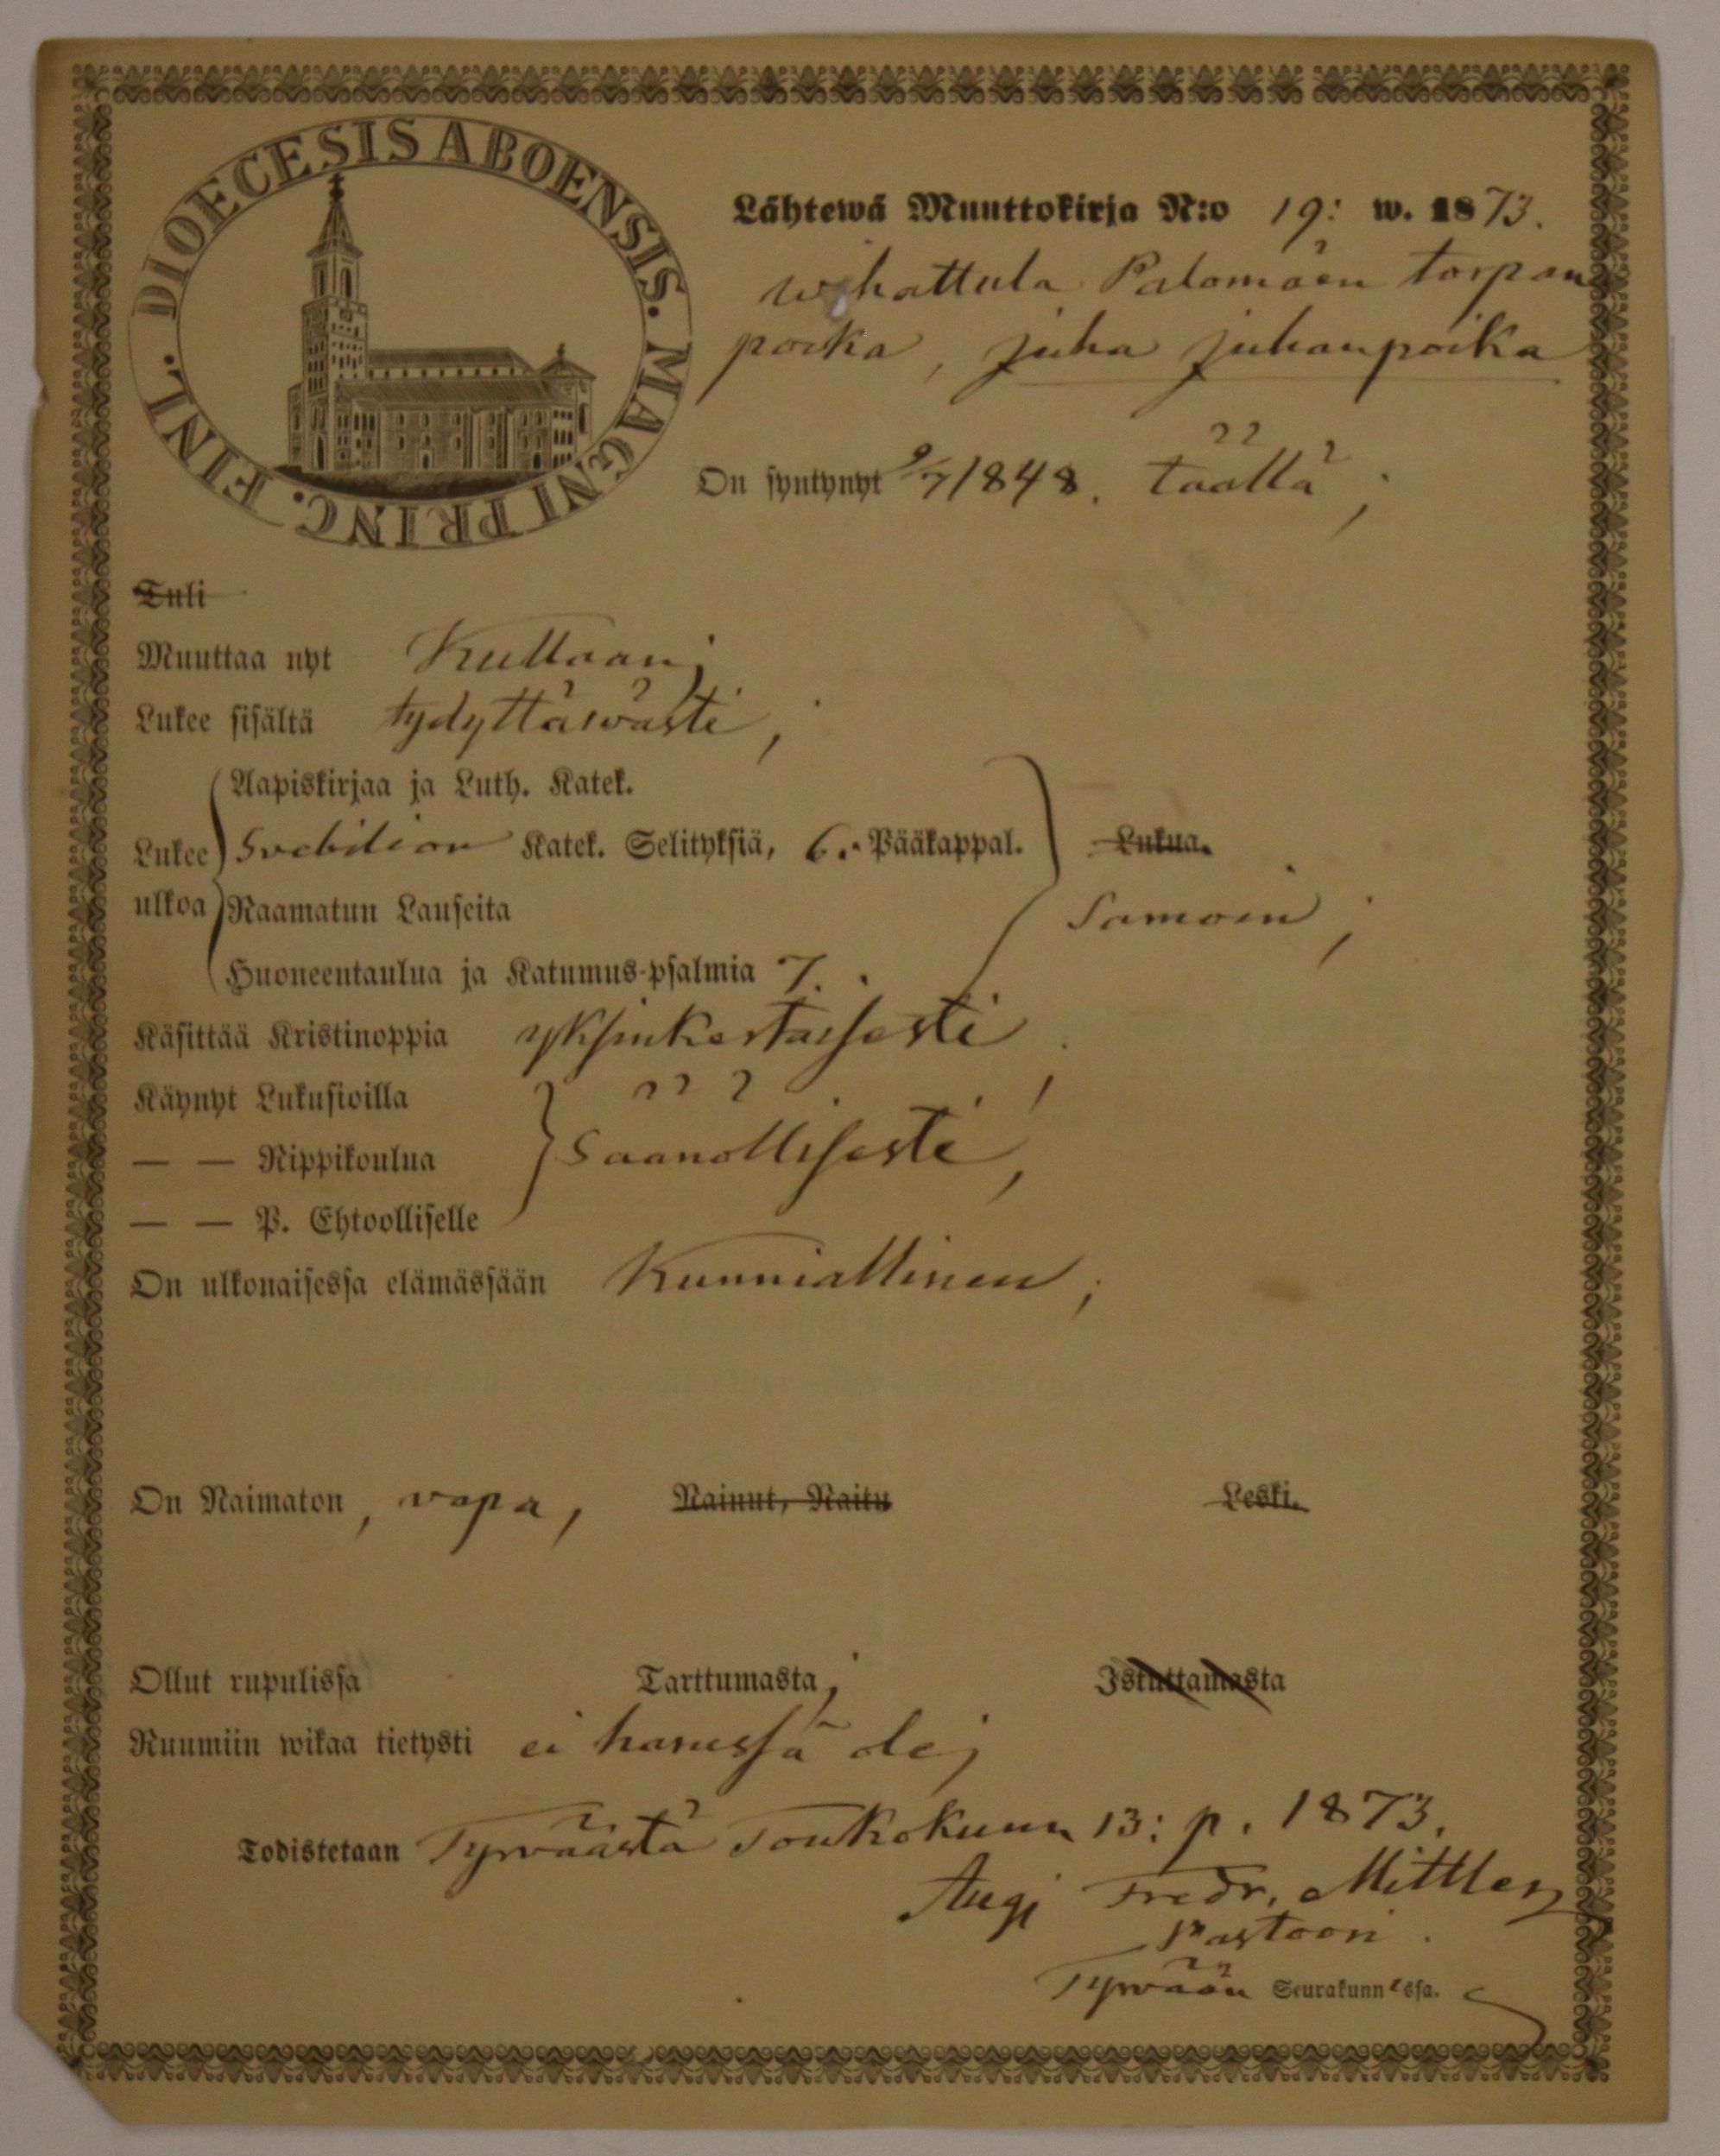 DIOECESIS ABOENSIS. MAGNI PRINC. FINL.
Lähtewä Muuttokirja N:o 19: w. 1873.
wihattula Palomäen torpan
poika, Juha Juhanpoika
On syntynyt 9/7 1848. täällä;
Tuli
Muuttaa nyt Kullaan;
Lukee sisältä tydyttäwästi;
Aapiskirjaa ja Luth. Katek.
Lukee Svebilion Katek. Selityksiä, 6. Pääkappal. Lukua.
ulkoa Raamatun Lauseita Samoin;
Huoneentaulua ja Katumus-psalmia 7.
Käsittää Kristinoppia yksinkertaisesti;
Käynyt Lukusioilla
— — Rippikoulua Säänöllisesti,
— — P. Ehtoolliselle
On ulkonaisessa elämässään Kunniallinen;
On Naimaton, vapa, Nainut, Naitu Leski.
Ollut rupulissa Tarttumasta; Istuttamasta
Ruumiin wikaa tietysti ei hänessä ole;
Todistetaan Tyrväästä Toukokuun 13: p. 1873.
Aug. Fredr. Mittler
Pastori.
Tyrvään Seurakunnassa.